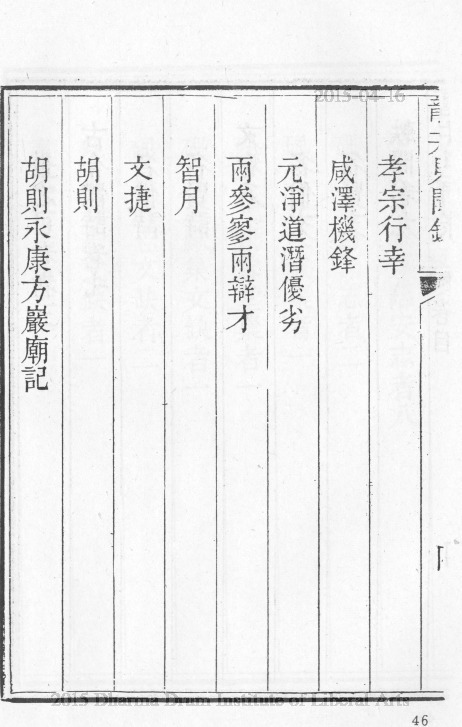 2015-04-16
孝宗行幸
咸澤機鋒
元淨道潛優劣
兩參寥兩辯才
智月
文捷
胡則
胡則永康方巖廟記
2015 Dharma Drum Institute of Liberal Arts
46